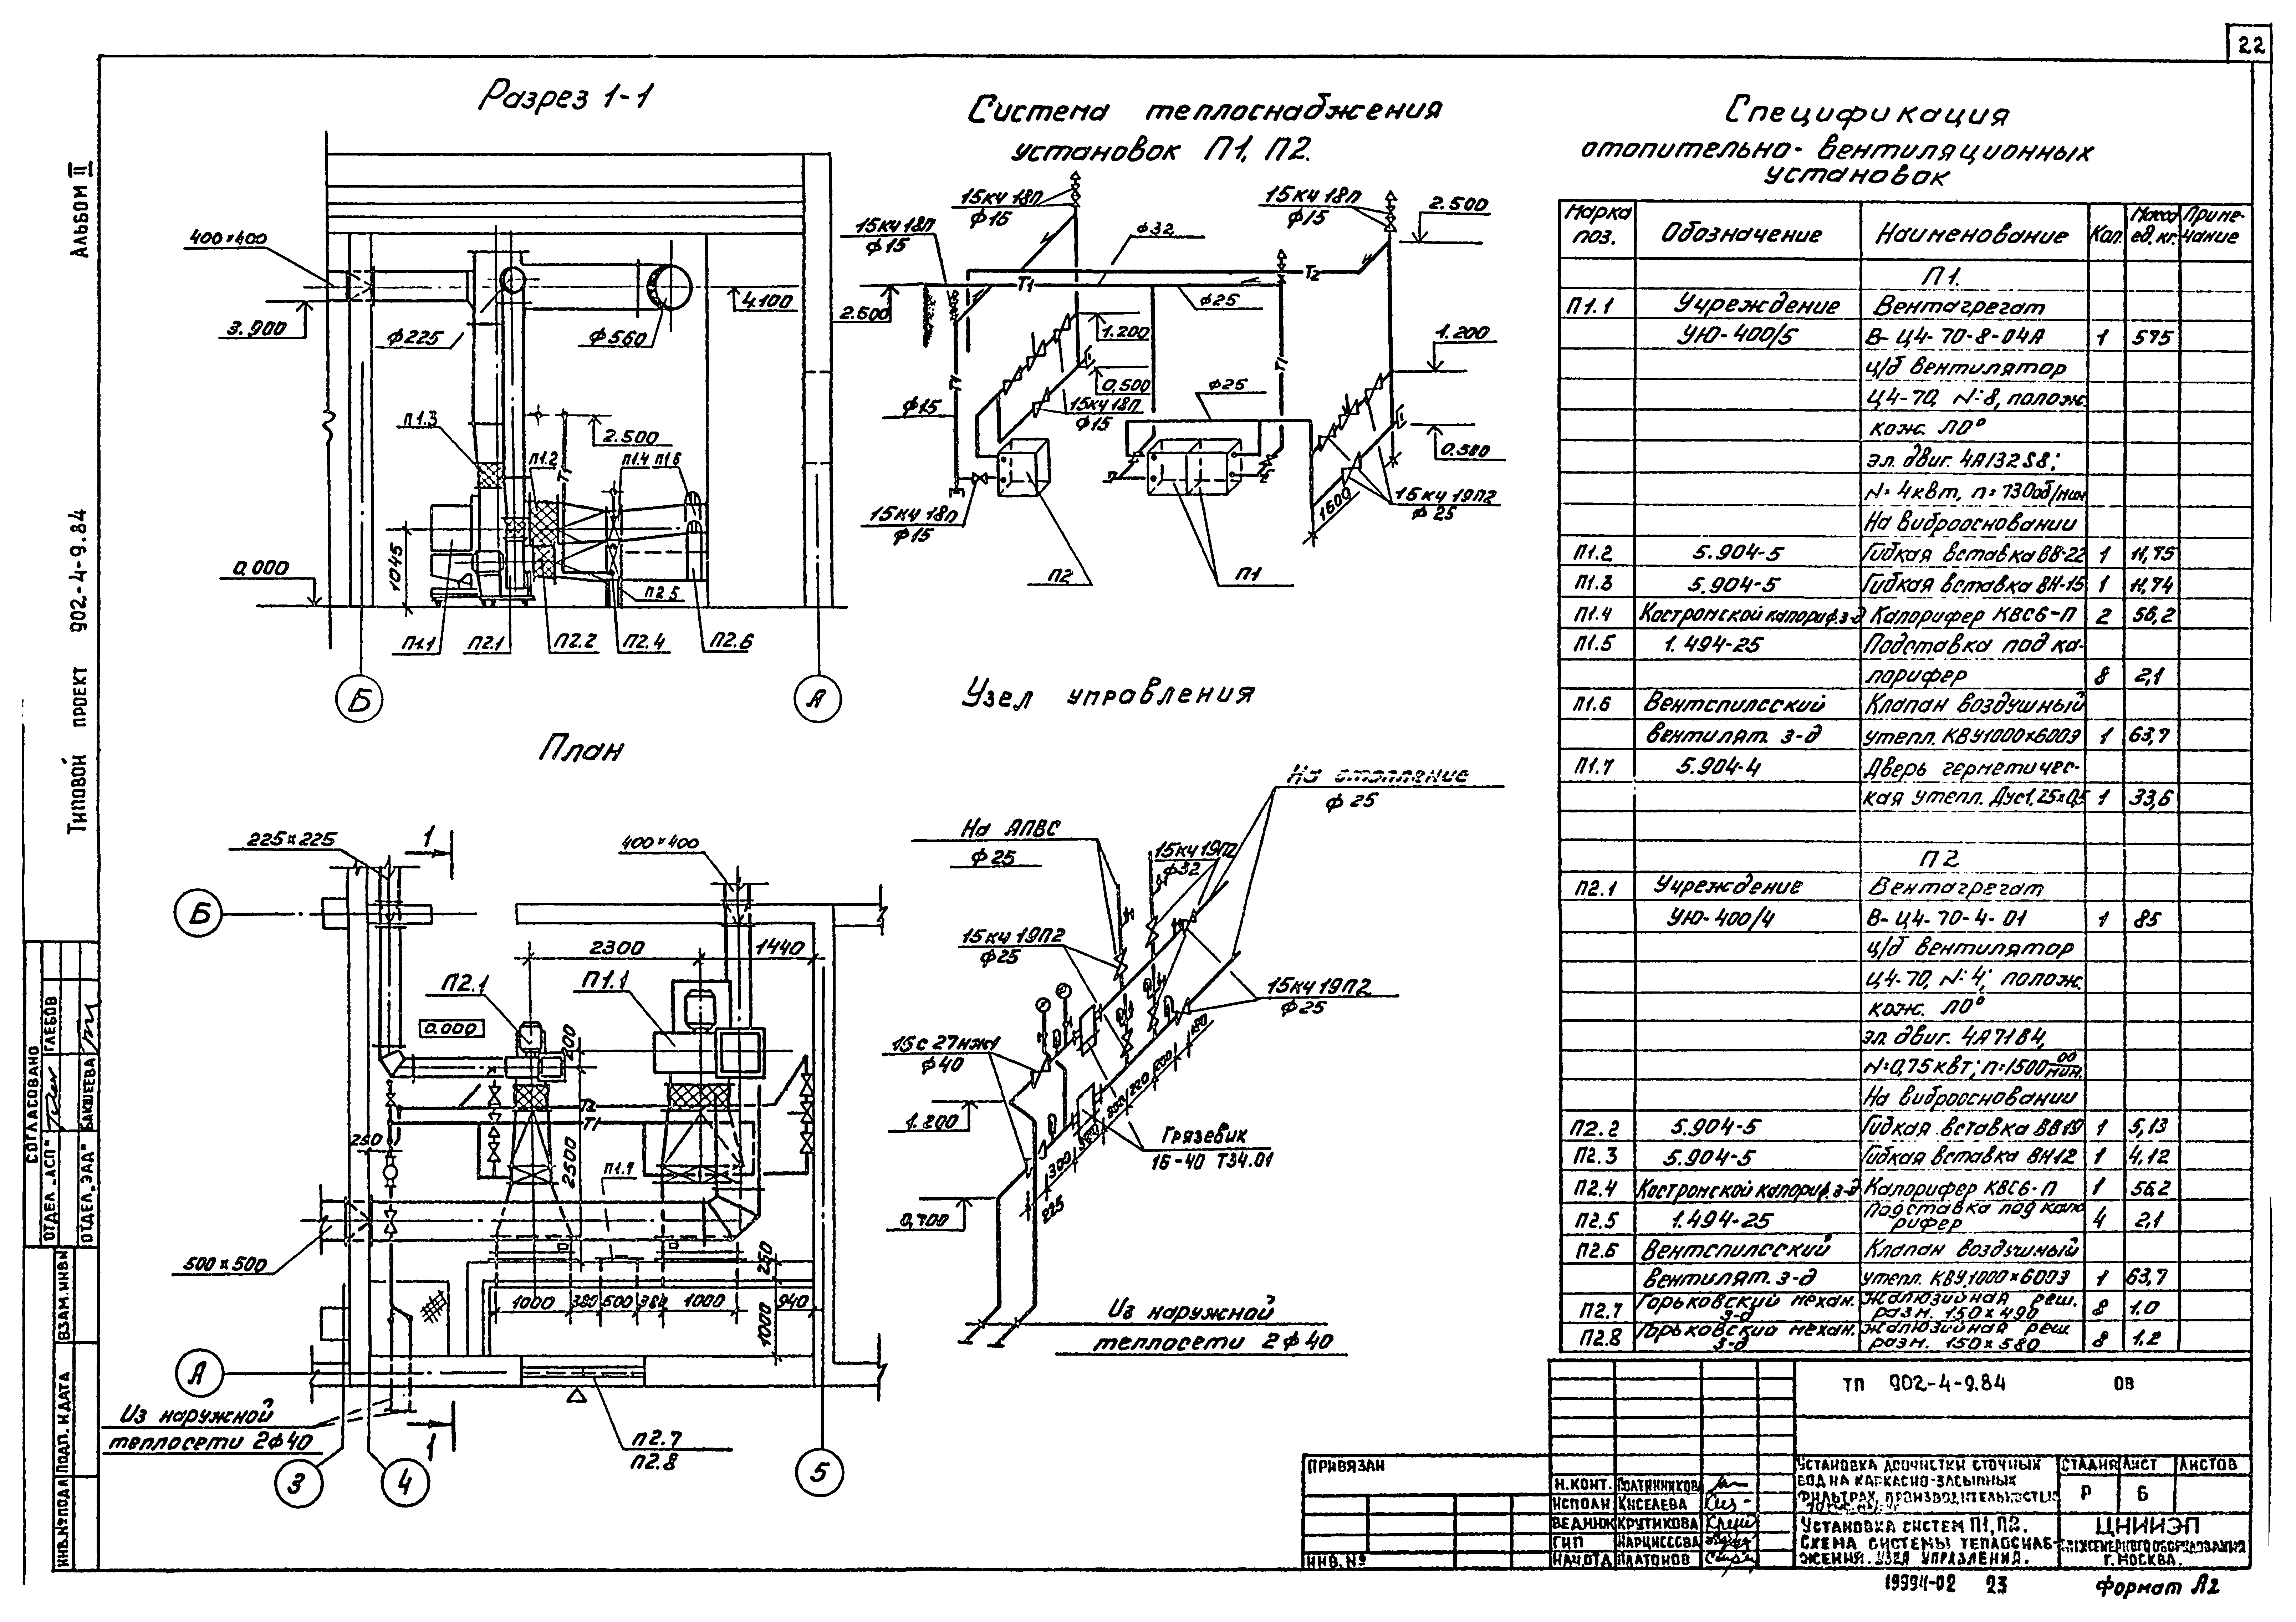 22
Альбом II
Типовой проект 902-4-9.84
Разрез 1-1
400×400
3.900
ϕ225
ϕ560
4.100
П1.3
2.500
П1.2
Т1
П1.4 П1.6
1045
0.000
П2.5
П1.1
П2.1
П2.2
П2.4
П2.6
Б
А
Система теплоснабжения
установок П1, П2.
15кч 18п
ϕ15
15кч 18п
ϕ15
15кч 18п
ϕ15
ϕ32
2.500
Т1
Т2
2.500
ϕ25
1.200
1.200
0.500
Т1
Т1
ϕ15
15кч 18п
ϕ15
ϕ25
0.580
1500
15кч 19П2
ϕ25
15кч 18п
ϕ15
П2
П1
План
225×225
1
400×400
Б
2300
1440
П2.1
П1.1
0.000
200
Т2
Т1
250
2500
П1.7
500×500
250
1000
380
500
380
1000
940
1000
А
Из наружной
теплосети 2ϕ40
1
П2.7
П2.8
3
4
5
Узел управления
На отопление
ϕ25
На АПВС
ϕ25
15кч 19П2
ϕ32
15кч 19П2
ϕ25
15кч 19П2
ϕ25
15с 27нж1
ϕ40
1.200
Грязевик
16-40 Т34.01
180
200
220
300
225
0.700
Из наружной
теплосети 2ϕ40
Спецификация
отопительно-вентиляционных
установок
Марка поз. Обозначение Наименование Кол. Масса ед. кг. Примечание
П1.
П1.1 Учреждение Вентагрегат
УЮ-400/5 В-Ц4-70-8-04А 1 575
ц/б вентилятор
Ц4-70, №8, полож.
кож. Л0°
эл. двиг. 4А132S8;
N=4квт, n=730об/мин
На виброосновании
П1.2 5.904-5 Гибкая вставка ВВ-22 1 11,75
П1.3 5.904-5 Гибкая вставка ВН-15 1 11,74
П1.4 Костромской калориф. з-д Калорифер КВС6-П 2 56,2
П1.5 1.494-25 Подставка под ка-
лорифер 8 2,1
П1.6 Вентспилсский Клапан воздушный
вентилят. з-д утепл. КВУ1000×600Э 1 63,7
П1.7 5.904-4 Дверь герметичес-
кая утепл. Дус1,25×0,5 1 33,6
П2
П2.1 Учреждение Вентагрегат
УЮ-400/4 В-Ц4-70-4-01 1 85
ц/б вентилятор
Ц4-70, №4; полож.
кож. Л0°
эл. двиг. 4А71В4,
N=0,75квт; n=1500 об/мин.
На виброосновании
П2.2 5.904-5 Гибкая вставка ВВ19 1 5,13
П2.3 5.904-5 Гибкая вставка ВН12 1 4,12
П2.4 Костромской калориф. з-д Калорифер КВС6-П 1 56,2
П2.5 1.494-25 Подставка под калорифер 4 2,1
П2.6 Вентспилсский Клапан воздушный
вентилят. з-д утепл. КВУ.1000×600Э 1 63,7
П2.7 Горьковский механ. з-д жалюзийная реш. разм. 150×490 8 1.0
П2.8 Горьковский механ. з-д жалюзийная реш. разм. 150×580 8 1.2
ТП 902-4-9.84 ОВ
Привязан
Инв. №
Н.конт. Полтинникова
Исполн. Киселева
Вед.инж Крутикова
ГИП Нарциссова
Нач.отд Платонов
Установка доочистки сточных
вод на каркасно-засыпных
фильтрах производительностью
Стадия Лист Листов
Р 6
Установка систем П1, П2.
Схема системы теплоснаб-
жения. Узел управления.
ЦНИИЭП
инженерного оборудования
г. Москва.
19994-02 23
Формат А2
Согласовано
Отдел "АСП" Глебов
Отдел "ЭАД" Бакшеева
Взам.инв.№
Подп. и дата
Инв.№ подл